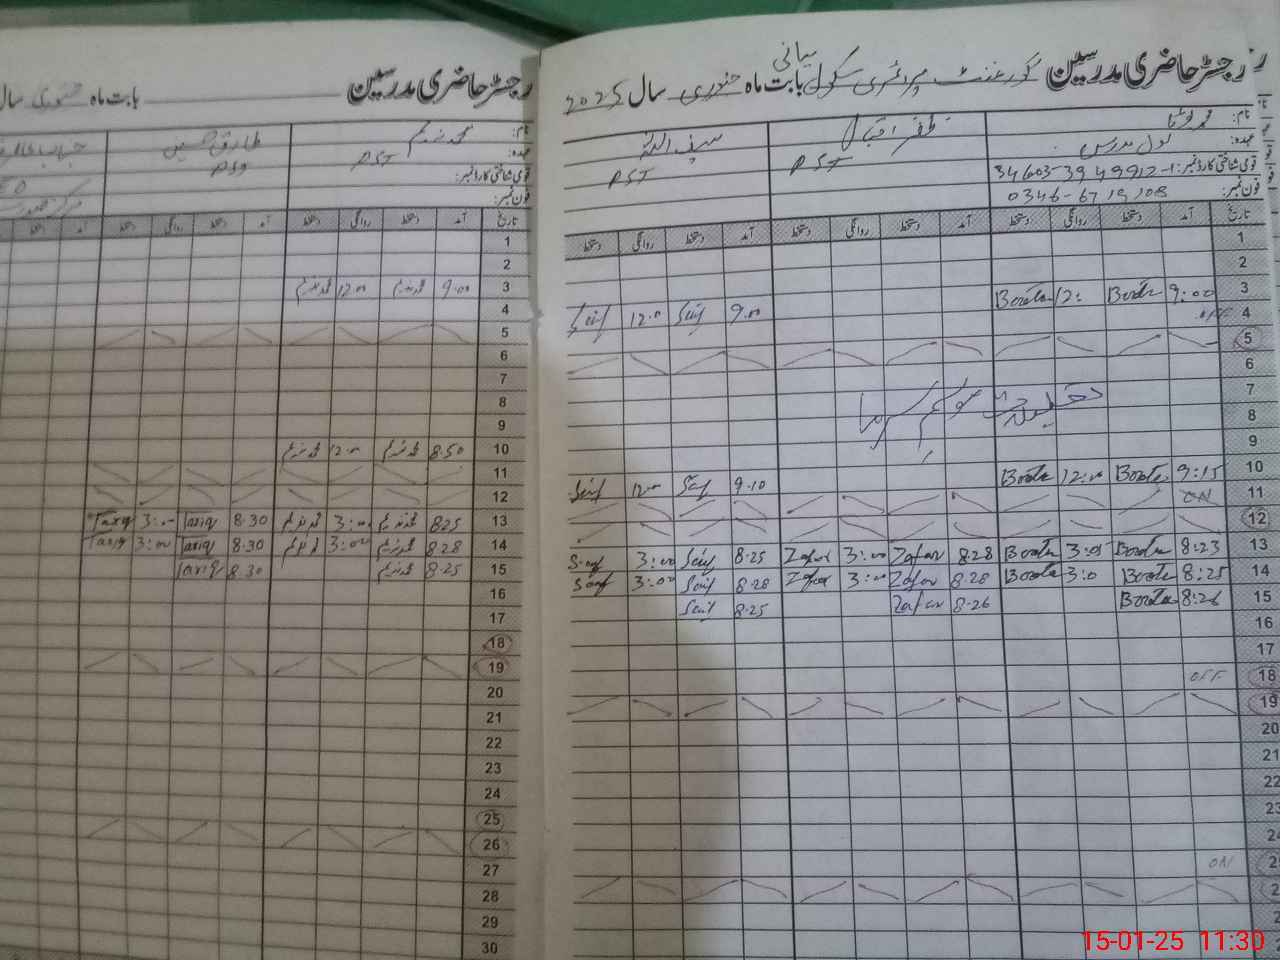 رجسٹر حاضری مدرسین گورنمنٹ پرائمری سکول بیانی بابت ماہ جنوری سال 2025
نام: محمد بوٹا ظفر اقبال سیف اللہ
عہدہ: سکول مدرس PST PST
قومی شناختی کارڈ نمبر: 34603-3949912-1
فون نمبر: 0346-6719108
تاریخ آمد دستخط روانگی دستخط آمد دستخط روانگی دستخط آمد دستخط روانگی دستخط
1
2
3 9:00 Boota 12: Boota
4 OFF 9.00 Saif 12.0 Saif
5
6
7 تعطیلات موسم سرما
8
9
10 9:15 Boota 12:00 Boota 9.10 Saif 12.00 Saif
11 ON
12
13 8:23 Boota 3:05 Boota 8.28 Zafar 3:00 Zafar 8.25 Saif 3:00 Saif
14 8:25 Boota 3:0 Boota 8.28 Zafar 3:00 Zafar 8.28 Saif 3:00 Saif
15 8:26 Boota 8.26 Zafar 8.25 Saif
16
17
18 OFF
19
20
21
22
23
24
ON
رجسٹر حاضری مدرسین بابت ماہ جنوری سال
نام: محمد ندیم طارق حسین
عہدہ: PST PST
قومی شناختی کارڈ نمبر:
فون نمبر:
تاریخ آمد دستخط روانگی دستخط آمد دستخط روانگی دستخط آمد دستخط
1
2
3 9.00 محمد ندیم 12.00 محمد ندیم
4
5
6
7
8
9
10 8.50 محمد ندیم 12.00 محمد ندیم
11
12
13 8.25 محمد ندیم 3:00 محمد ندیم 8.30 Tariq 3:00 Tariq
14 8.28 محمد ندیم 3:00 محمد ندیم 8.30 Tariq 3:00 Tariq
15 8.25 محمد ندیم 8.30 Tariq
16
17
18
19
20
21
22
23
24
25
26
27
28
29
30
15-01-25 11:30